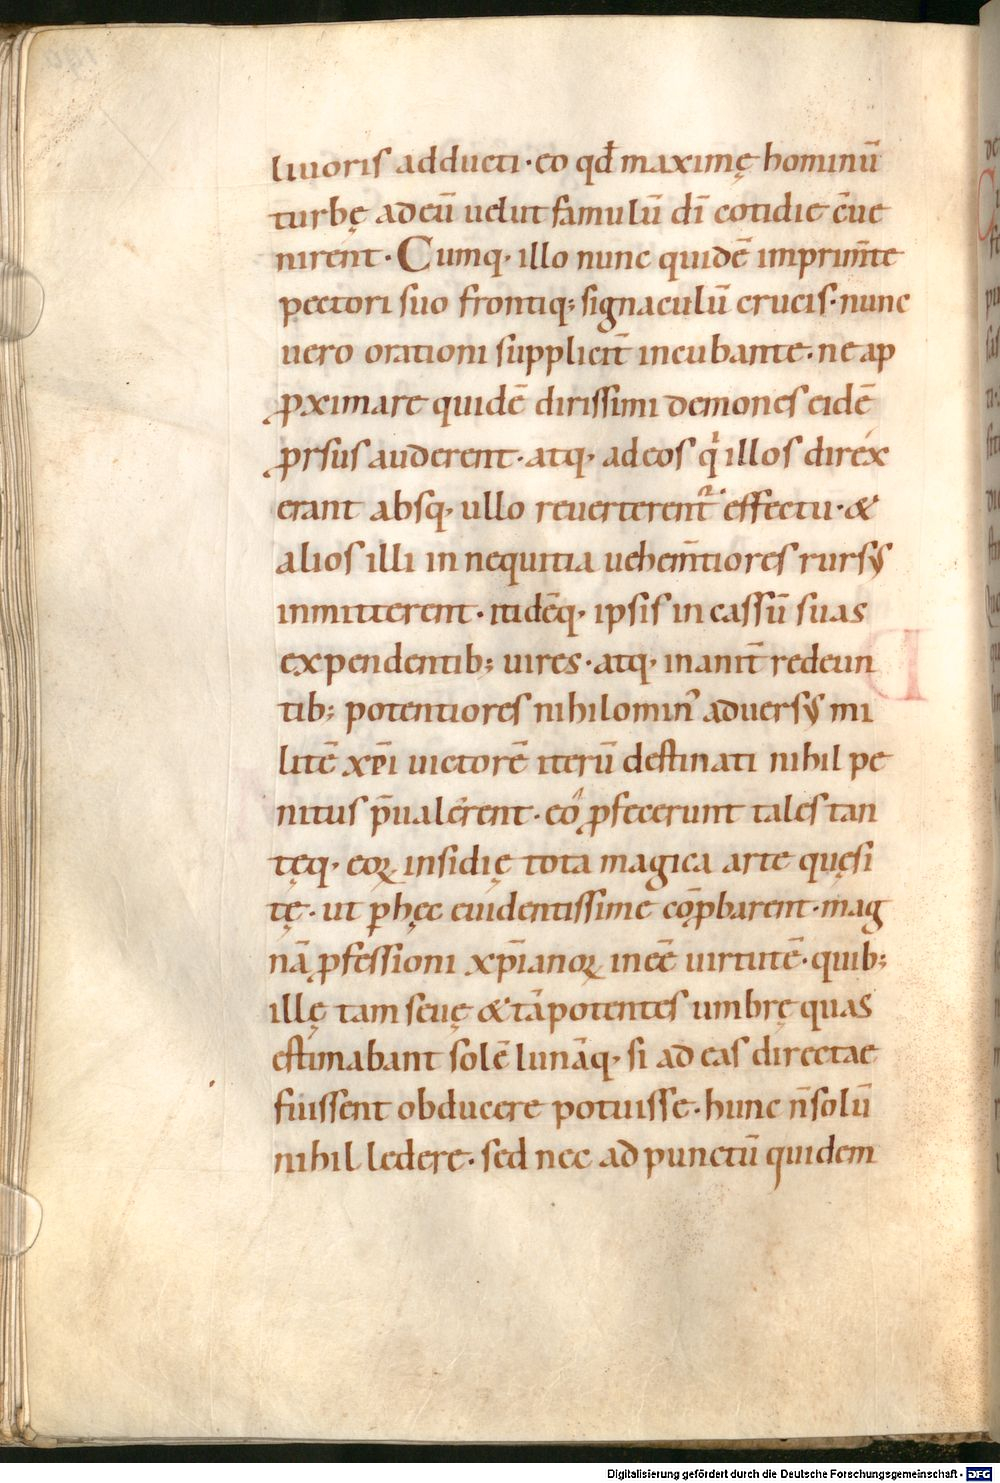 liuoris adducti · eo qđ maximę hominū
turbę ad eū uelut famulū dī cotidie c̄ue
nirent · Cumq· illo nunc quidē imprim̄te
pectori suo frontiq; signaculū crucis · nunc
uero orationi supplicit̄ incubante · ne ap
ꝓximare quidē dirissimi demones eidē
ꝓrsus auderent · atq· ad eos qͥ illos direx
erant absq· ullo reuerterent᷑ effectu · &
alios illi in nequitia uehem̄tiores rursꝰ
inmitterent · itidēq· ipsis in cassū suas
expendentib; uires · atq· inanit̄ redeun
tib; potentiores nihilomin᾿ aduersꝰ mi
litē xp̄i uictorē iterū destinati nihil pe
nitus p̄ualerent · eo ꝓfecerunt tales tan
tęq· eoꝝ insidię tota magica arte quęsi
tę · ut ꝑ hęc euidentissime cōꝓbarent · mag
nā ꝓfessioni xp̄ianoꝝ inēē uirtutē · quib;
illę tam seuę & tā potentes umbrę quas
estimabant solē lunāq· si ad eas directae
fuissent obducere potuisse · hunc n̄ solū
nihil ledere · sed nec ad punctū quidem
Digitalisierung gefördert durch die Deutsche Forschungsgemeinschaft - DFG